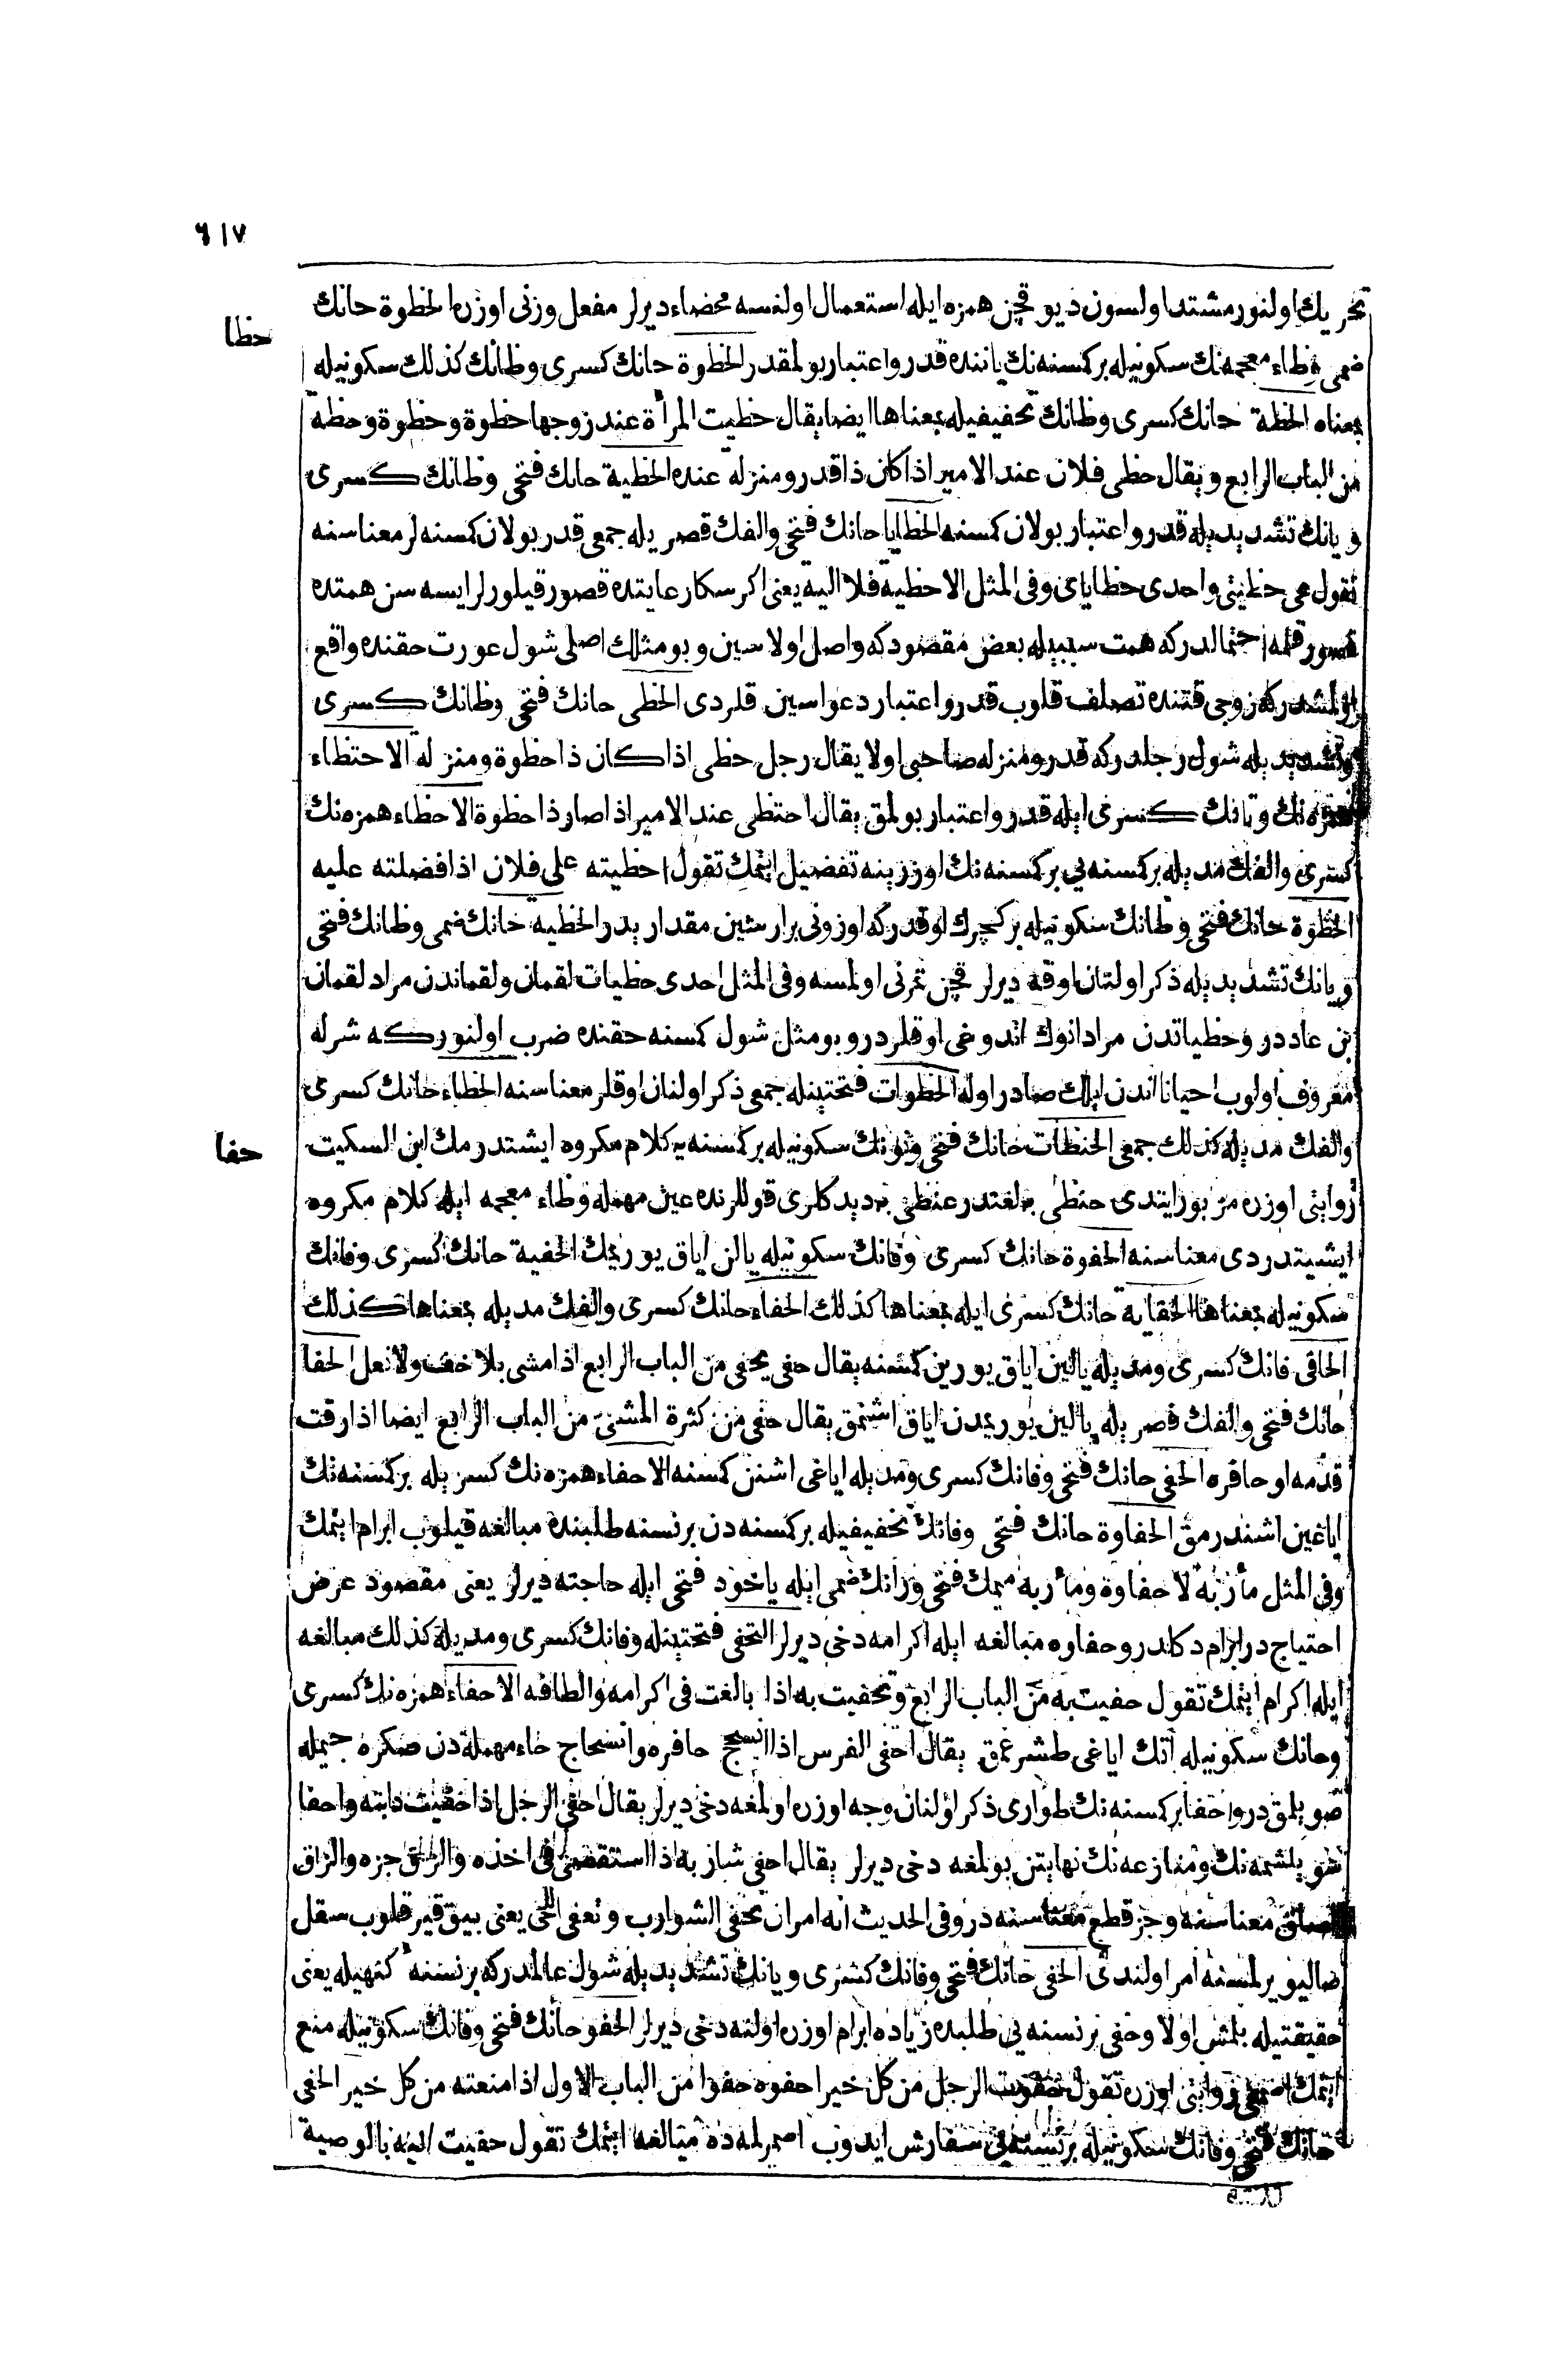 ٦١٧
تحريك اولنور مشتد اولسون ديو قچن همزه ايله استعمال اولنسه محضاء ديرلر مفعل وزنى اوزره الحظوة حانك
حظا
ضمى وظاء معجمه نك سكونيله بر كسنه نك ياننده قدر واعتبار بولمقدر الحظوة حانك كسرى وظانك كذلك سكونيله
بمعناه الحظة حانك كسرى وظانك تخفيفيله بمعناها ايضا يقال حظيت المرأة عند زوجها حظوة وحظوة وحظة
من الباب الرابع ويقال حظى فلان عند الامير اذا كان ذا قدر ومنزلة عنده الحظية حانك فتحى وظانك كسرى
ويانك تشديديله قدر واعتبار بولان كسنه الحظايا حانك فتحى والفك قصريله جمعى قدر بولان كسنه لر معناسنه
تقول هى حظيتى واحدى حظاياى وفى المثل الا حظية فلا الية يعنى اكر سكا رعايتده قصور قيلورلر ايسه سن همتده
قصور قلمه احتمالدركه همت سببيله بعض مقصودكه واصل اولاسين وبو مثلك اصلى شول عورت حقنده واقع
اولمشدركه زوجى قتنده تصلف قلوب قدر واعتبار دعواسين قلردى الحظى حانك فتحى وظانك كسرى
وتشديديله شول رجلدركه قدر ومنزله صاحبى اولا يقال رجل حظى اذا كان ذا حظوة ومنزلة الاحتظاء
همزه نك وتانك كسرى ايله قدر واعتبار بولمق يقال احتظى عند الامير اذا صار ذا حظوة الاحظاء همزه نك
كسرى والفك مديله بر كسنه يى بر كسنه نك اوزرينه تفضيل ايتمك تقول احظيته على فلان اذا فضلته عليه
الحظوة حانك فتحى وظانك سكونيله بر كچرك اوقدركه اوزونى برارشين مقداريدر الحظيه حانك ضمى وظانك فتحى
ويانك تشديديله ذكر اولنان اوقه ديرلر قچن تمرنى اولمسه وفى المثل احدى حظيات لقمان ولقماندن مراد لقمان
بن عاددر وحظياتدن مراد انوك اندوغى اوقلردر وبو مثل شول كسنه حقنده ضرب اولنوركه شرله
معروف اولوب احيانا اندن ايلك صادر اوله الحظوات فتحتينله جمعى ذكر اولنان اوقلر معناسنه الحظاء حانك كسرى
والفك مديله كذلك جمعى الحنظات حانك فتحى ونونك سكونيله بر كسنه يه كلام مكروه ايشتدرمك ابن السكيت
حفا
روايتى اوزره مزبور ايتدى حنظى به لغتدر عنظى به ديدكلرى قوللرنده عين مهمله وظاء معجمه ايله كلام مكروه
ايشيتدردى معناسنه الحفوة حانك كسرى وفانك سكونيله يالن اياق يوريمك الحفية حانك كسرى وفانك
سكونيله بمعناها الحفاية حانك كسرى ايله بمعناها كذلك الحفاء حانك كسرى والفك مديله بمعناها كذلك
الحافى فانك كسرى ومديله يالين اياق يورين كسنه يقال حفى يحفى من الباب الرابع اذا مشى بلا خف ولا نعل الحفا
حانك فتحى والفك قصريله يالين يوريمدن اياق اشنمق يقال حفى من كثرة المشى من الباب الرابع ايضا اذا رقت
قدمه او حافره الحفى حانك فتحى وفانك كسرى ومديله اياغى اشنن كسنه الاحفاء همزه نك كسريله بر كسنه نك
اياغين اشندرمق الحفاوة حانك فتحى وفانك تخفيفيله بر كسنه دن بر نسنه طلبنده مبالغه قيلوب ابرام ايتمك
وفى المثل مأربة لا حفاوة ومأربه ميمك فتحى ورانك ضمى ايله ياخود فتحى ايله حاجته ديرلر يعنى مقصود عرض
احتياج در ابرام دكلدر وحفاوه مبالغه ايله اكرامه دخى ديرلر التحفى فتحتينله وفانك كسرى ومديله كذلك مبالغه
ايله اكرام ايتمك تقول حفيت به من الباب الرابع وتحفيت به اذا بالغت فى اكرامه والطافه الاحفاء همزه نك كسرى
وحانك سكونيله آتك اياغى طشرغمق يقال احفى الفرس اذا انسحج حافره وانسحاج حاء مهمله دن صكره جيمله
صويلمق در واحفا بر كسنه نك طوارى ذكر اولنان وجه اوزره اولمغه دخى ديرلر يقال احفى الرجل اذا حفيت دابته واحفا
صويلشمه نك ومنازعه نك نهايتن بولمغه دخى ديرلر يقال احفى شاربه اذا استقصى فى اخذه والزق جزه والزاق
الصاق معناسنه وجز قطع معناسنه در وفى الحديث انه امر ان تحفى الشوارب وتعفى اللحى يعنى بيق قيرقلوب سقل
صاليويرلمسنه امر اولندى الحفى حانك فتحى وفانك كسرى ويانك تشديديله شول عالمدركه بر نسنه كنهيله يعنى
حقيقتيله بلمش اولا وحفى بر نسنه يى طلبده زياده ابرام اوزره اولنه دخى ديرلر الحفو حانك فتحى وفانك سكونيله منع
ايتمك اصمعى روايتى اوزره تقول حفوت الرجل من كل خير احفوه حفوا من الباب الاول اذا منعته من كل خير الحفى
حانك فتحى وفانك سكونيله بر نسنه يى سفارش ايدوب اصمرلمه ده مبالغه ايتمك تقول حفيت اليه بالوصية